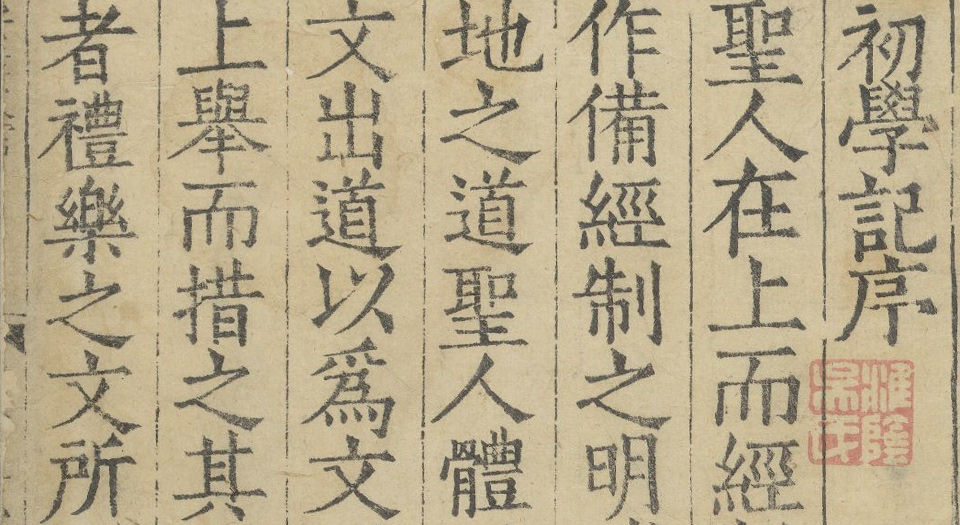 初學記序
聖人在上而經
作備經制之明
地之道聖人體
文出道以爲文
上舉而措之其
者禮樂之文所
淮陰吳氏